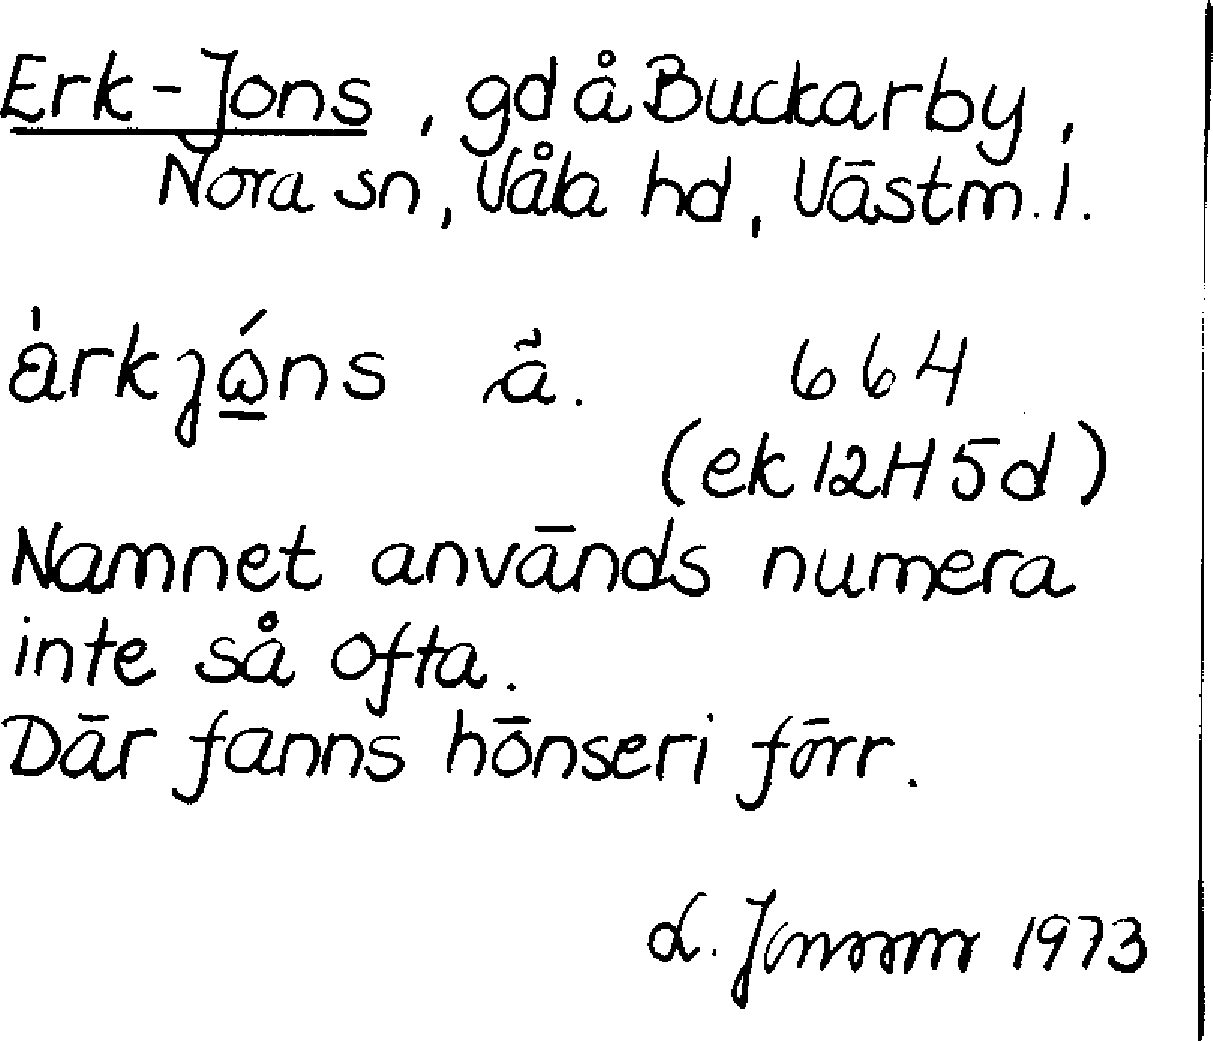 Erk-Jons, gd å Buckarby,
Nora sn, Våla hd, Västm. l.
ã. 664
(ek 12H5d)
Namnet används numera
inte så ofta.
Där fanns hönseri förr.
1973